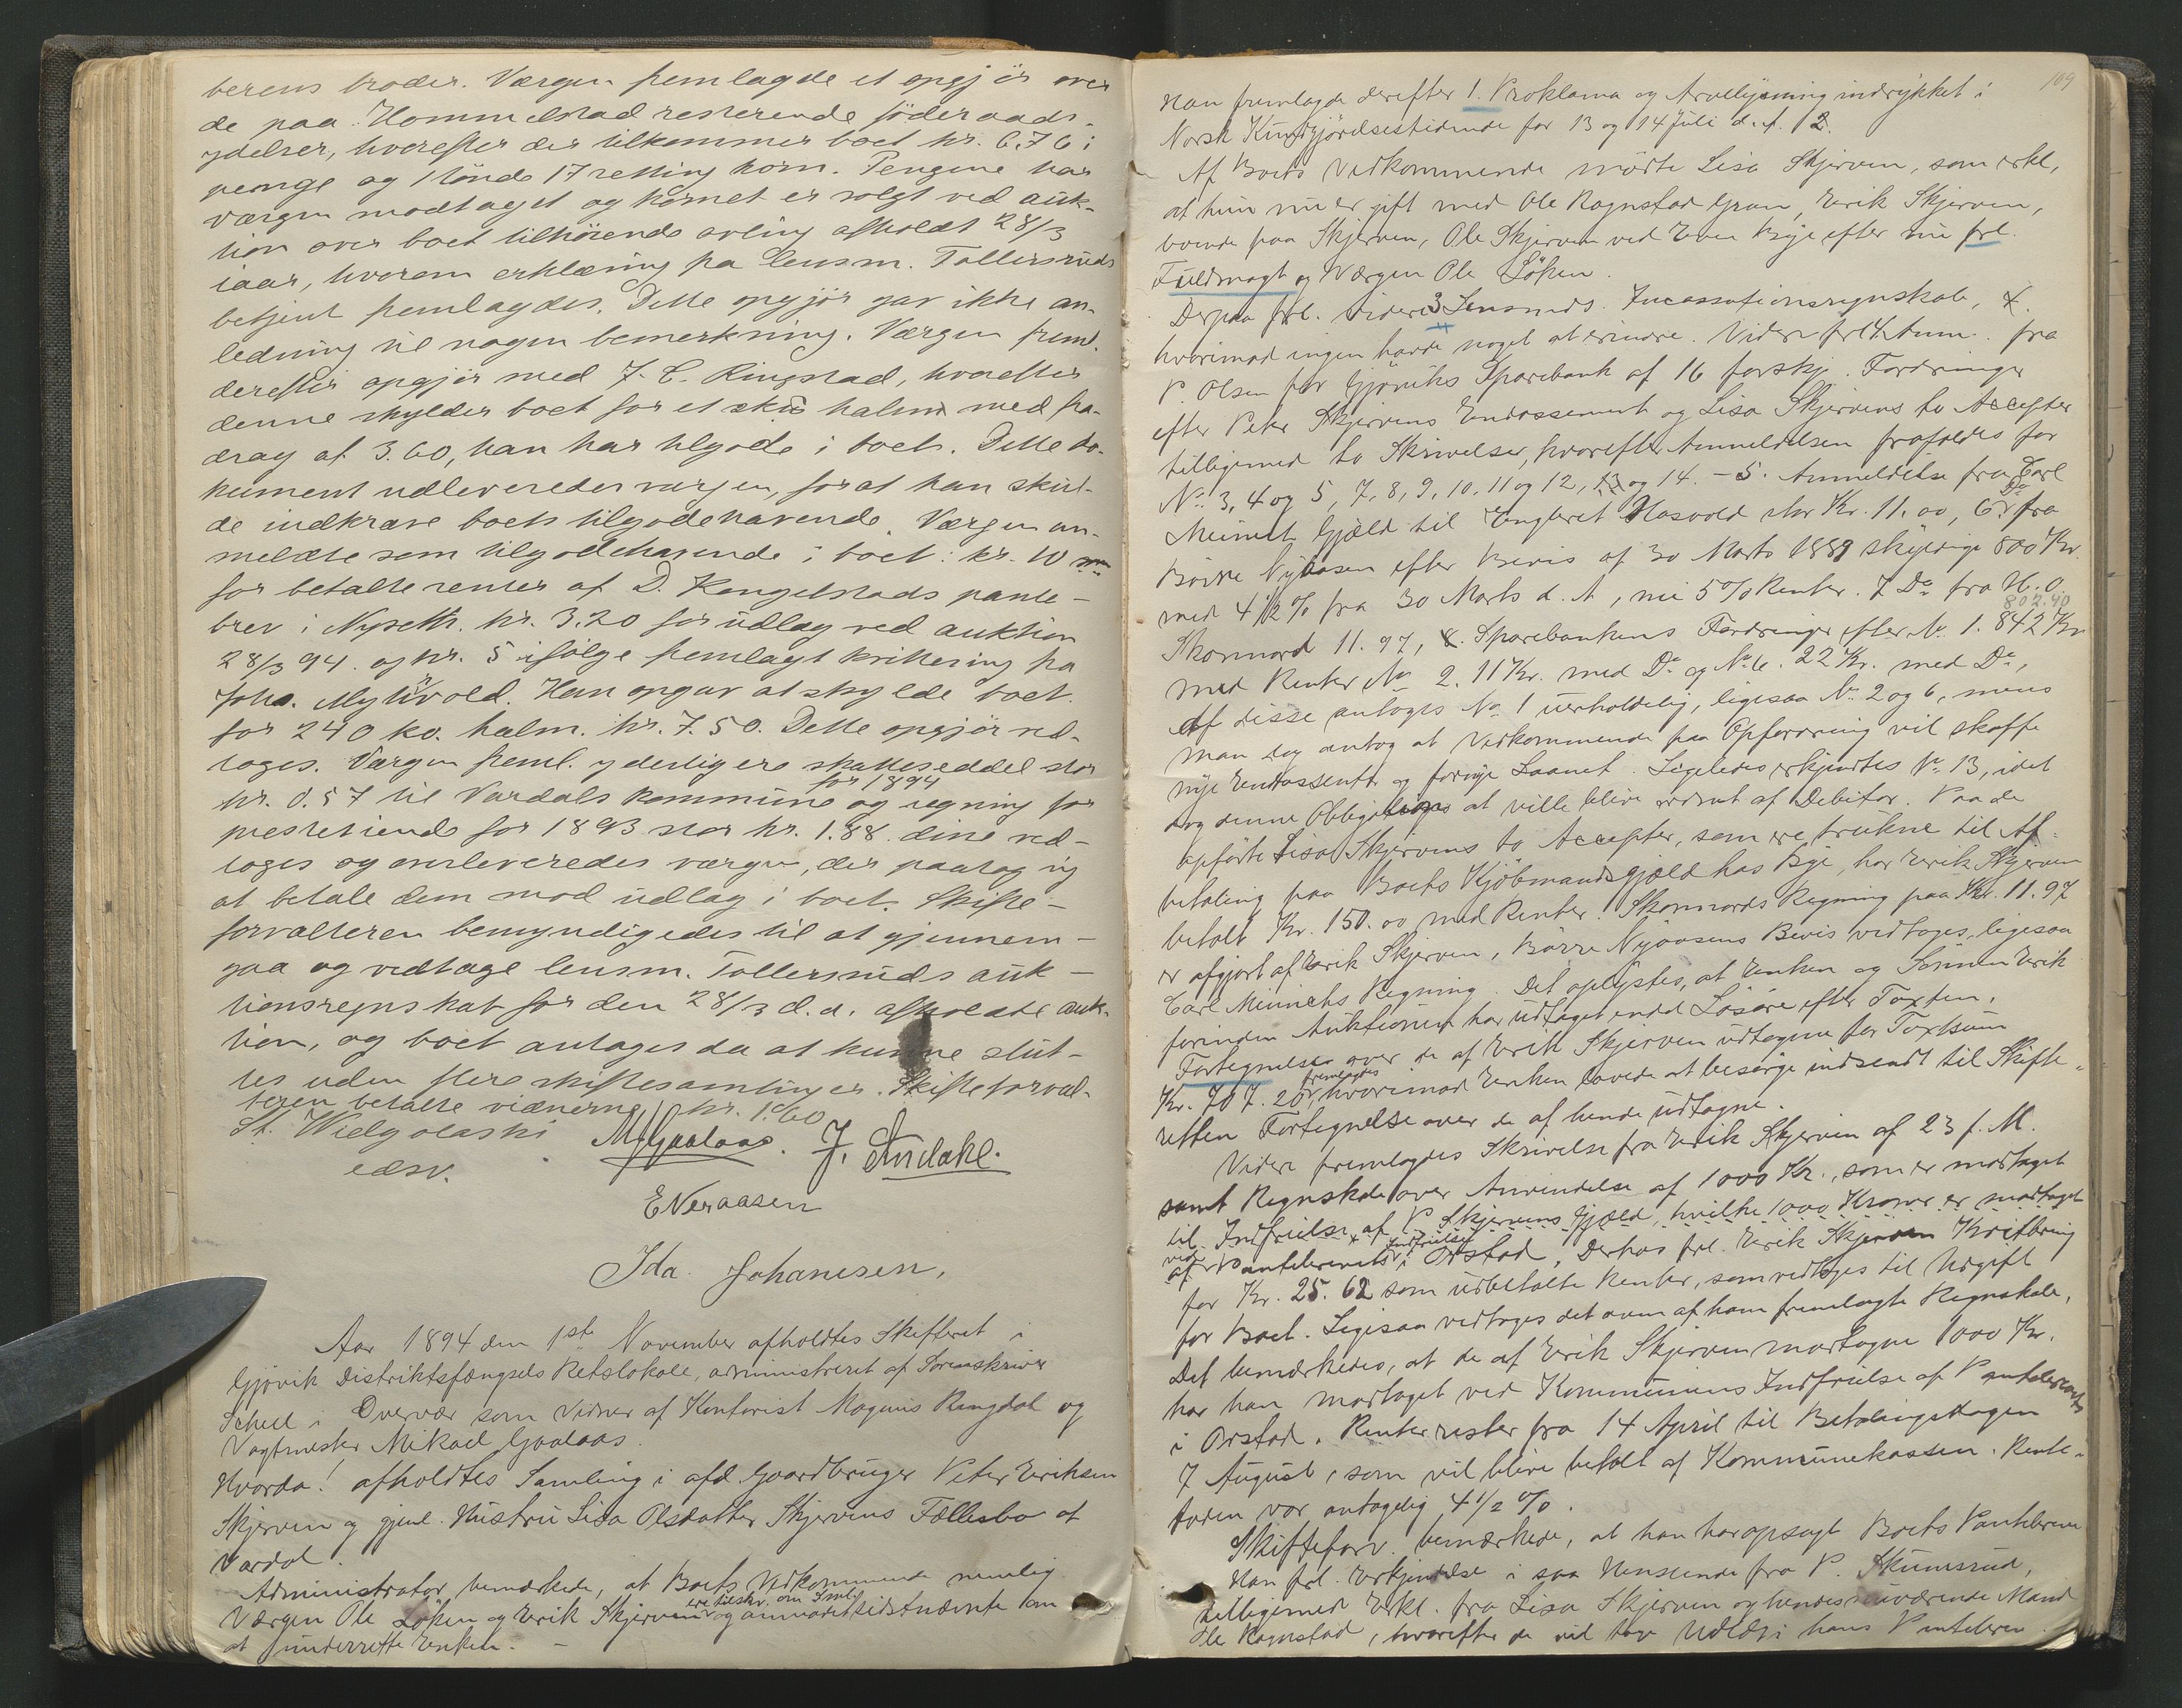 berens broder. Værgen fremlagde et opgjör over
de paa Hommelstad resterende föderaads-
ydelser, hvorefter der tilkommer boet kr. 6.76 i
penge og 1 tönde 17 setting korn. Pengene har
værgen modtaget og kornet er solgt ved auk-
tion over boet tilhörende avling afholdt 28/3
iaar, hvorom erklæring fra lensm. Tollersruds
betjent fremlagdes. Dette opgjör gav ikke an-
ledning til nogen bemerkning. Værgen freml.
derefter opgjör med J. C. Ringstad, hvorefter
denne skylder boet for et halm med fra-
drag af 3.60, han har tilgode i boet. Dette do-
kument udleveredes værgen, forat han skul-
de indkræve boets tilgodehavende. Værgen an-
meldte som tilgodehavende i boet: kr. 10
for betalte renter af D. Kongelstads pante-
brev i Nyseth. kr. 3.20 for udlæg ved auktion
28/3 94. og kr. 5 ifölge fremlagt kvittering fra
Johs. Myhrvold. Han opgav at skylde boet
for 240 ko. halm. kr. 7.50. Dette opgjör ved-
toges. Værgen freml. yderligere skatteseddel stor
kr. 0.57 til Vardals kommune for 1894 og regning for
prestetiende for 1893 stor kr. 1.88. disse ved-
toges og overleveredes værgen, der paatog sig
at betale dem mod udlæg i boet. Skifte-
forvalteren bemyndigedes til at gjennem-
gaa og vedtage lensm. Tollersruds auk-
tionsregnskab for den 28/3 d. a. afholdte auk-
tion, og boet antages da at kunne slut-
tes uden flere skiftesamlinger. Skifteforval-
teren betalte vidnerne kr. 1.60
St. Wielgolaski M Gaalaas. J. Andahl.
edsv.
E Neraasen
Ida Johanesen,
Aar 1894 den 1ste November afholdtes Skifteret i
Gjövik Distriktsfængsels Retslokale, administreret af Sorenskriver
Schell i Overvær som Vidner af Kontorist Magnus Ringdal og
Vagtmester Mikael Gaalaas.
Hvorda! afholdtes Samling i afd. Gaardbruger Peter Eriksen
Skjerven og gjenl. Hustru Lisa Olsdatter Skjervens Fællesbo af
Vardal.
Administrator bemærkede, at Boets Vedkommende nemlig
Værgen Ole Löken og Erik Skjerven ere tilskr. om Saml. og anmodet sidstnævnte om
at underrette Enken. –
109
Han fremlagde derefter 1. Proklama og Arvelysning indrykket i
Norsk Kundgjörelsestidende for 13 og 14 Juli d. A. 2.
Af Boets Vedkommende mödte Lisa Skjerven, som erkl,
at hun nu er gift med Ole Rognstad Gran, Erik Skjerven,
boende paa Skjerven, Ole Skjerven ved Even Bye efter nu frl.
Fuldmagt og Værgen Ole Löken.
Derpaa frl. videre 3 Lensmds. Incassationsregnskab,
hvorimod ingen havde noget at erindre. Videre frl. 4. Anm. fra
P. Olsen for Gjöviks Sparebank af 16 forskj. Fordringer
efter Peter Skjervens Endossement og Lisa Skjervens to Accepter
tilligemed to Skrivelser, hvorefter Anmeldelsen frafaldes for
No. 3, 4 og 5, 7, 8, 9, 10, 11 og 12, 13 og 14. – 5. Anmeldelse fra Carl
Meinich Gjæld til Hasvold stor Kr. 11.00, 6. Do fra
Börre Nyaasen efter Bevis af 30 Marts 1889 skyldige 800 Kr.
med 4 1/2 % fra 30 Marts d. A, nu 5 % Renter. 7 Do fra H. O.
Skonnord 11.97, 8. Sparebankens Fordringer efter No. 1. 842 Kr
802.40
med Renter No 2. 11 Kr. med Do og No 6. 22 Kr. med Do,
Af disse antoges No 1 uerholdelig, ligesaa No. 2 og 6, mens
man dog antog at Vedkommende paa Opfordring vil skaffe
nye Endossenter og fornye Laanet. Ligeledes erkjendtes No. 13, idet
dog denne Obligation at ville blive ordnet af Debitor. Paa de
opförte Lisa Skjervens to Accepter, som ere trukne til Af-
betaling paa Boets Kjöbmandsgjæld hos Bye, har Erik Skjerven
betalt Kr. 150.00 med Renter. Skonnords Regning paa Kr. 11.97
er afgjort af Erik Skjerven, Börre Nyaasens Bevis vedtoges, ligesaa
Carl Meinichs Regning. Det oplystes, at Enken og Sönnen Erik
forinden Auktionen har udtaget endel Lösöre efter Taxten.
Fortegnelse over de af Erik Skjerven udtagne for Taxtsum
Kr. 707.20 fremlagdes, hvorimod Enken lovede at besörge indsendt til Skifte-
retten Fortegnelse over de af hende udtagne.
Videre fremlagdes Skrivelse fra Erik Skjerven af 23 f. M.
samt Regnskab over Anvendelse af 1000 Kr., som er modtaget
til Indfrielse af P. Skjervens Gjæld, hvilke 1000 Kroner er modtaget
ved af Pantebrevets Indfrielse i Onstad. Derhos frl. Erik Skjerven Kvittering
for Kr. 25.62 som udbetalte Renter, som vedtoges til Udgift
for Boet. Ligesaa vedtoges det oven af ham fremlagte Regnskab.
Det bemærkedes, at de af Erik Skjerven modtagne 1000 Kr.
har han modtaget ved Kommunens Indfrielse af Pantebrevets
i Onstad. Renter rester fra 14 April til Betalingsdagen
7 August, som vil blive betalt af Kommunekassen. Rente-
foden var antagelig 4 1/2 %.
Skifteforv. bemærkede, at han har opsagt Boets Pantebreve
Han frl. Erkjendelse i saa Henseende fra P. Skumsrud,
tilligemed Erkl. fra Lisa Skjerven og hendes nuværende Mand
Ole Rognstad, hvorefter de vil tage Udlæg i hans Pantebrev.